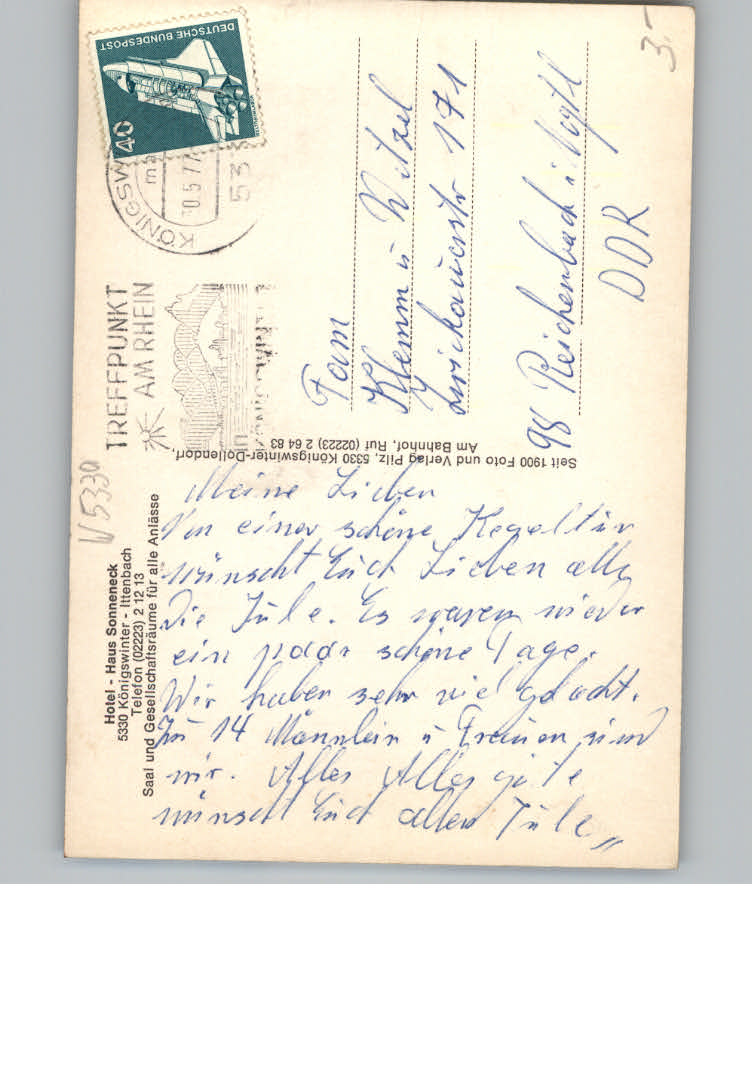 Hotel - Haus Sonneneck
5330 Königswinter - Ittenbach
Telefon (02223) 2 12 13
Saal und Gesellschaftsräume für alle Anlässe
W 5330
Meine Lieben
Von einer schöne Kegeltür
wünscht Euch Lieben alle
Die Jule. Es waren wieder
ein paar schöne Tage.
Wir haben sehr viel gelacht.
Zu 14 Männlein u Frauen sind
wir. Alles Alles gute
wünscht Euch allen Jule
Seit 1900 Foto und Verlag Pilz, 5330 Königswinter-Dollendorf,
Am Bahnhof, Ruf (02223) 2 64 83
TREFFPUNKT
AM RHEIN
KÖNIGSWINTER
KÖNIGSW
0.5.77
533
DEUTSCHE BUNDESPOST
40
3.-
Fam
Klemm u Witzel
Zwickauerstr 171
98 Reichenbach i. Vogtl
DDR